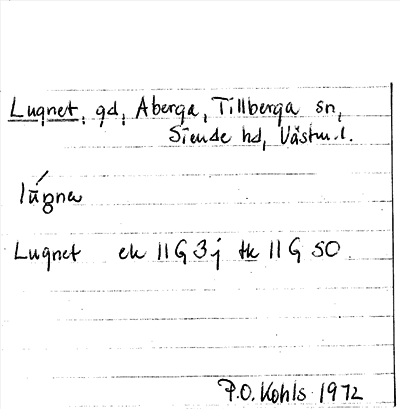 Lugnet, gd, Aberga, Tillberga sn,
Siende hd, Västm. l.
Lugnet ek 11 G 3 j tk 11 G SO
P.O. Kohls 1972